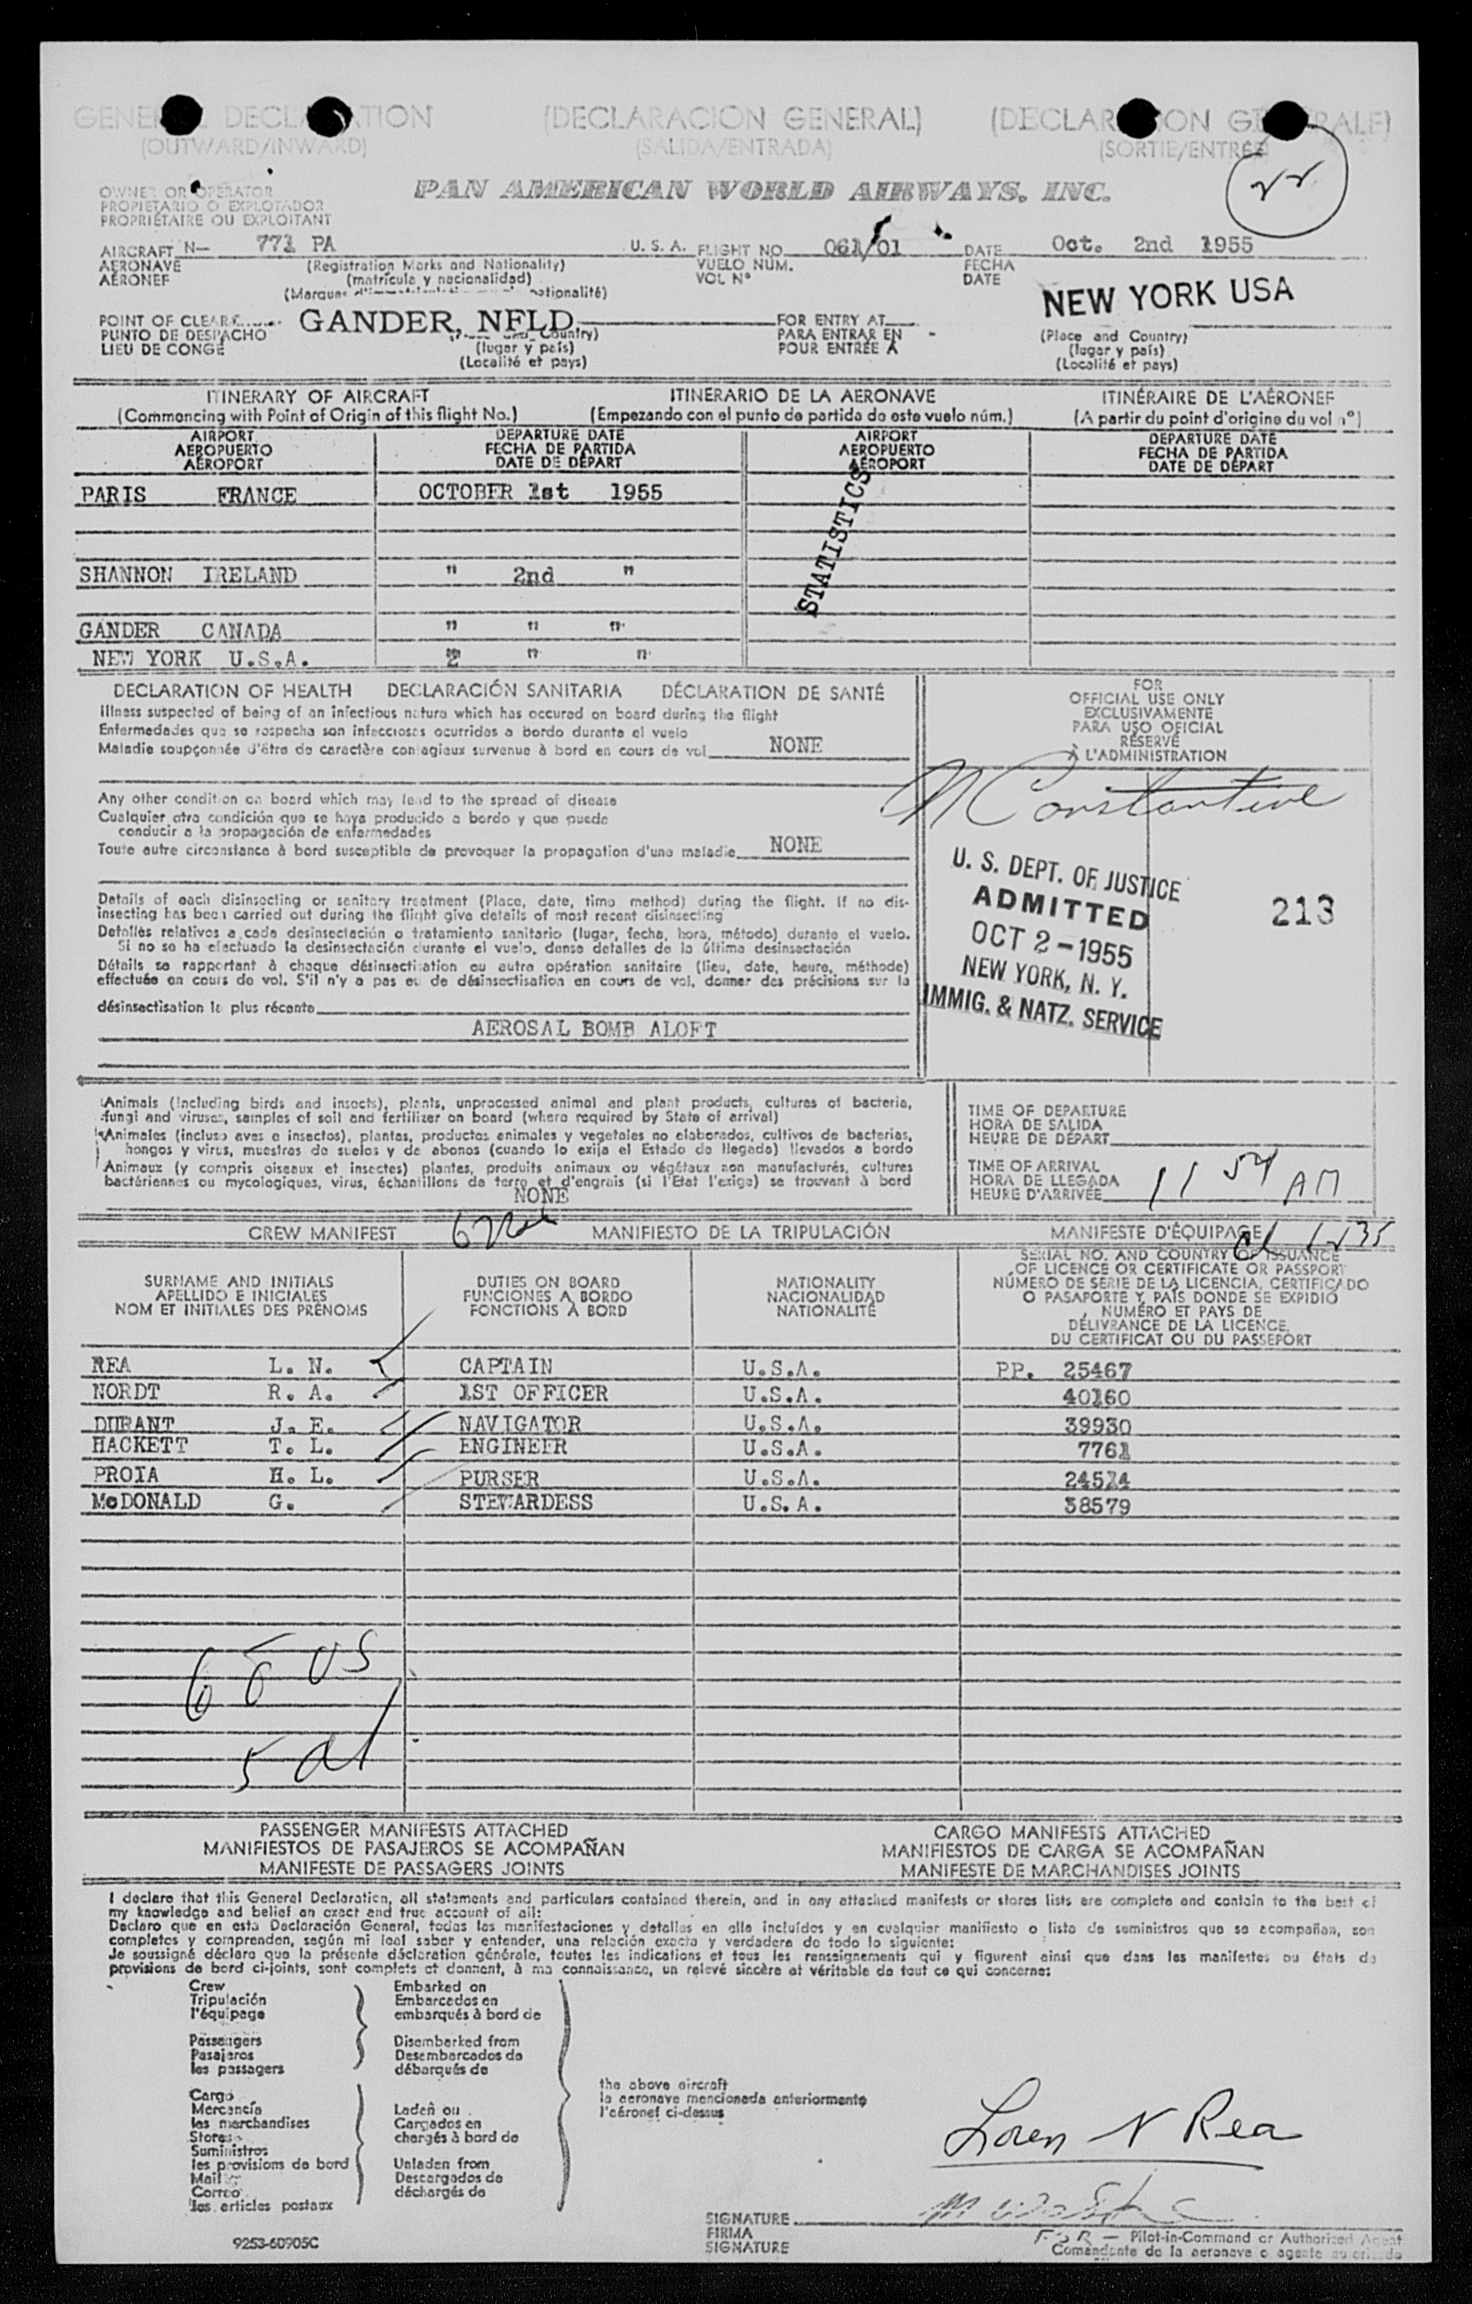 GENERAL DECLARATION (DECLARACION GENERAL) (DECLARATION GENERALE)
(OUTWARD/INWARD) (SALIDA/ENTRADA) (SORTIE/ENTRÉE
22
OWNER OR OPERATOR
PROPIETARIO O EXPLOTADOR
PROPRIÉTAIRE OU EXPLOITANT
PAN AMERICAN WORLD AIRWAYS, INC.
AIRCRAFT N— 771 PA U. S. A. FLIGHT NO. 061/01 DATE Oct. 2nd 1955
AERONAVE (Registration Marks and Nationality) VUELO NUM. FECHA
AÉRONEF (matrícula y nacionalidad) VOL N° DATE
(Marques nationalité)
NEW YORK USA
POINT OF CLEAR GANDER, NFLD FOR ENTRY AT
PUNTO DE DESPACHO Country) PARA ENTRAR EN (Place and Country)
LIEU DE CONGÉ (lugar y país) POUR ENTRÉE À (lugar y país)
(Localité et pays) (Localité et pays)
ITINERARY OF AIRCRAFT ITINERARIO DE LA AERONAVE ITINÉRAIRE DE L'AÉRONEF
(Commencing with Point of Origin of this flight No.) (Empezando con el punto de partida de este vuelo núm.) (A partir du point d'origine du vol n°)
AIRPORT DEPARTURE DATE AIRPORT DEPARTURE DATE
AEROPUERTO FECHA DE PARTIDA AEROPUERTO FECHA DE PARTIDA
AÉROPORT DATE DE DÉPART AÉROPORT DATE DE DÉPART
PARIS FRANCE OCTOBER 1st 1955
STATISTICS
SHANNON IRELAND " 2nd "
GANDER CANADA " " "
NEW YORK U.S.A. " "
DECLARATION OF HEALTH DECLARACIÓN SANITARIA DÉCLARATION DE SANTÉ
Illness suspected of being of an infectious nature which has occured on board during the flight
Enfermedades que se sospecha son infecciosas ocurridas a bordo durante el vuelo
Maladie soupçonnée d'être de caractère contagieux survenue à bord en cours de vol NONE
Any other condition on board which may lead to the spread of disease
Cualquier otra condición que se haya producido a bordo y que puede
conducir a la propagación de enfermedades
Toute autre circonstance à bord susceptible de provoquer la propagation d'une maladie NONE
Details of each disinsecting or sanitary treatment (Place, date, time method) during the flight. If no dis-
insecting has been carried out during the flight give details of most recent disinsecting
Detalles relativos a cada desinsectación o tratamiento sanitario (lugar, fecha, hora, método) durante el vuelo.
Si no se ha efectuado la desinsectación durante el vuelo, dense detalles de la última desinsectación
Détails se rapportant à chaque désinsectisation ou autre opération sanitaire (lieu, date, heure, méthode)
effectuée en cours de vol. S'il n'y a pas eu de désinsectisation en cours de vol, donner des précisions sur la
désinsectisation la plus récente
AEROSAL BOMB ALOFT
FOR
OFFICIAL USE ONLY
EXCLUSIVAMENTE
PARA USO OFICIAL
RÉSERVÉ
À L'ADMINISTRATION
Constantine
U. S. DEPT. OF JUSTICE
ADMITTED
OCT 2-1955
NEW YORK, N. Y.
IMMIG. & NATZ. SERVICE
213
Animals (including birds and insects), plants, unprocessed animal and plant products, cultures of bacteria,
fungi and viruses, samples of soil and fertilizer on board (where required by State of arrival)
Animales (incluso aves e insectos), plantas, productos animales y vegetales no elaborados, cultivos de bacterias,
hongos y virus, muestras de suelos y de abonos (cuando lo exija el Estado de llegada) llevados a bordo
Animaux (y compris oiseaux et insectes) plantes, produits animaux ou végétaux non manufacturés, cultures
bactériennes ou mycologiques, virus, échantillons de terre et d'engrais (si l'État l'exige) se trouvant à bord
NONE
TIME OF DEPARTURE
HORA DE SALIDA
HEURE DE DÉPART
TIME OF ARRIVAL
HORA DE LLEGADA
HEURE D'ARRIVÉE 11 54 AM
CREW MANIFEST MANIFIESTO DE LA TRIPULACIÓN MANIFESTE D'ÉQUIPAGE
SURNAME AND INITIALS
APELLIDO E INICIALES
NOM ET INITIALES DES PRÉNOMS
DUTIES ON BOARD
FUNCIONES A BORDO
FONCTIONS À BORD
NATIONALITY
NACIONALIDAD
NATIONALITÉ
SERIAL NO. AND COUNTRY OF ISSUANCE
OF LICENCE OR CERTIFICATE OR PASSPORT
NÚMERO DE SERIE DE LA LICENCIA, CERTIFICADO
O PASAPORTE Y PAÍS DONDE SE EXPIDIÓ
NUMÉRO ET PAYS DE
DÉLIVRANCE DE LA LICENCE,
DU CERTIFICAT OU DU PASSEPORT
REA L. N. CAPTAIN U.S.A. PP. 25467
NORDT R. A. 1ST OFFICER U.S.A. 40160
DURANT J. E. NAVIGATOR U.S.A. 39930
HACKETT T. L. ENGINEER U.S.A. 7761
PROIA H. L. PURSER U.S.A. 24524
McDONALD G. STEWARDESS U.S.A. 38579
PASSENGER MANIFESTS ATTACHED CARGO MANIFESTS ATTACHED
MANIFIESTOS DE PASAJEROS SE ACOMPAÑAN MANIFIESTOS DE CARGA SE ACOMPAÑAN
MANIFESTE DE PASSAGERS JOINTS MANIFESTE DE MARCHANDISES JOINTS
I declare that this General Declaration, all statements and particulars contained therein, and in any attached manifests or stores lists are complete and contain to the best of
my knowledge and belief an exact and true account of all:
Declaro que en esta Declaración General, todas las manifestaciones y detalles en ella incluídos y en cualquier manifiesto o lista de suministros que se acompañan, son
completos y comprenden, según mi leal saber y entender, una relación exacta y verdadera de todo lo siguiente:
Je soussigné déclare que la présente déclaration générale, toutes les indications et tous les renseignements qui y figurent ainsi que dans les manifestes ou états de
provisions de bord ci-joints, sont complets et donnent, à ma connaissance, un relevé sincère et véritable de tout ce qui concerne:
Crew Embarked on
Tripulación Embarcados en
l'équipage embarqués à bord de
Passengers Disembarked from
Pasajeros Desembarcados de
les passagers débarqués de
Cargo
Mercancía Laden ou
les marchandises Cargados en
Stores chargés à bord de
Suministros
les provisions de bord Unladen from
Mail Descargados de
Correo déchargés de
les articles postaux
the above aircraft
la aeronave mencionada anteriormente
l'aéronef ci-dessus
Loren N Rea
SIGNATURE
FIRMA
SIGNATURE
FOR — Pilot-in-Command or Authorized Agent
Comandante de la aeronave o agente autorizado
9253-60905C